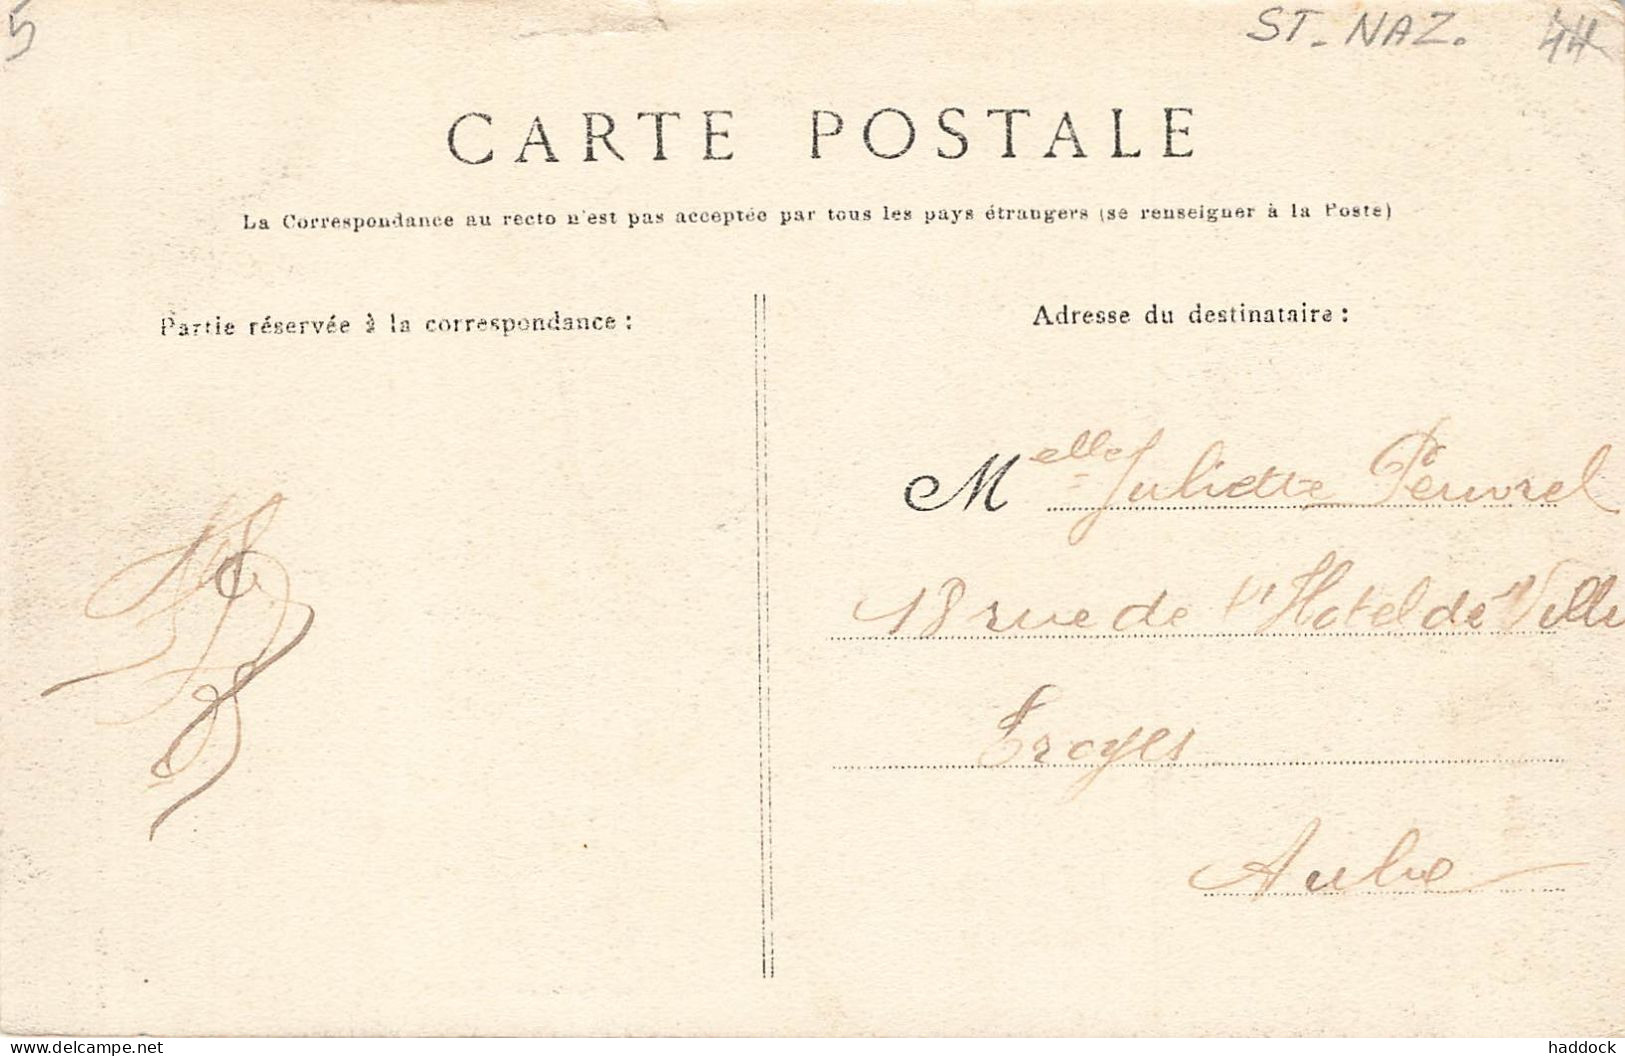 5
ST. NAZ. 44
CARTE POSTALE
La Correspondance au recto n'est pas acceptée par tous les pays étrangers (se renseigner à la Poste)
Partie réservée à la correspondance :
Adresse du destinataire :
Melle Juliette
18 rue de l'Hotel de Ville
Troyes
Aube
delcampe.net
haddock